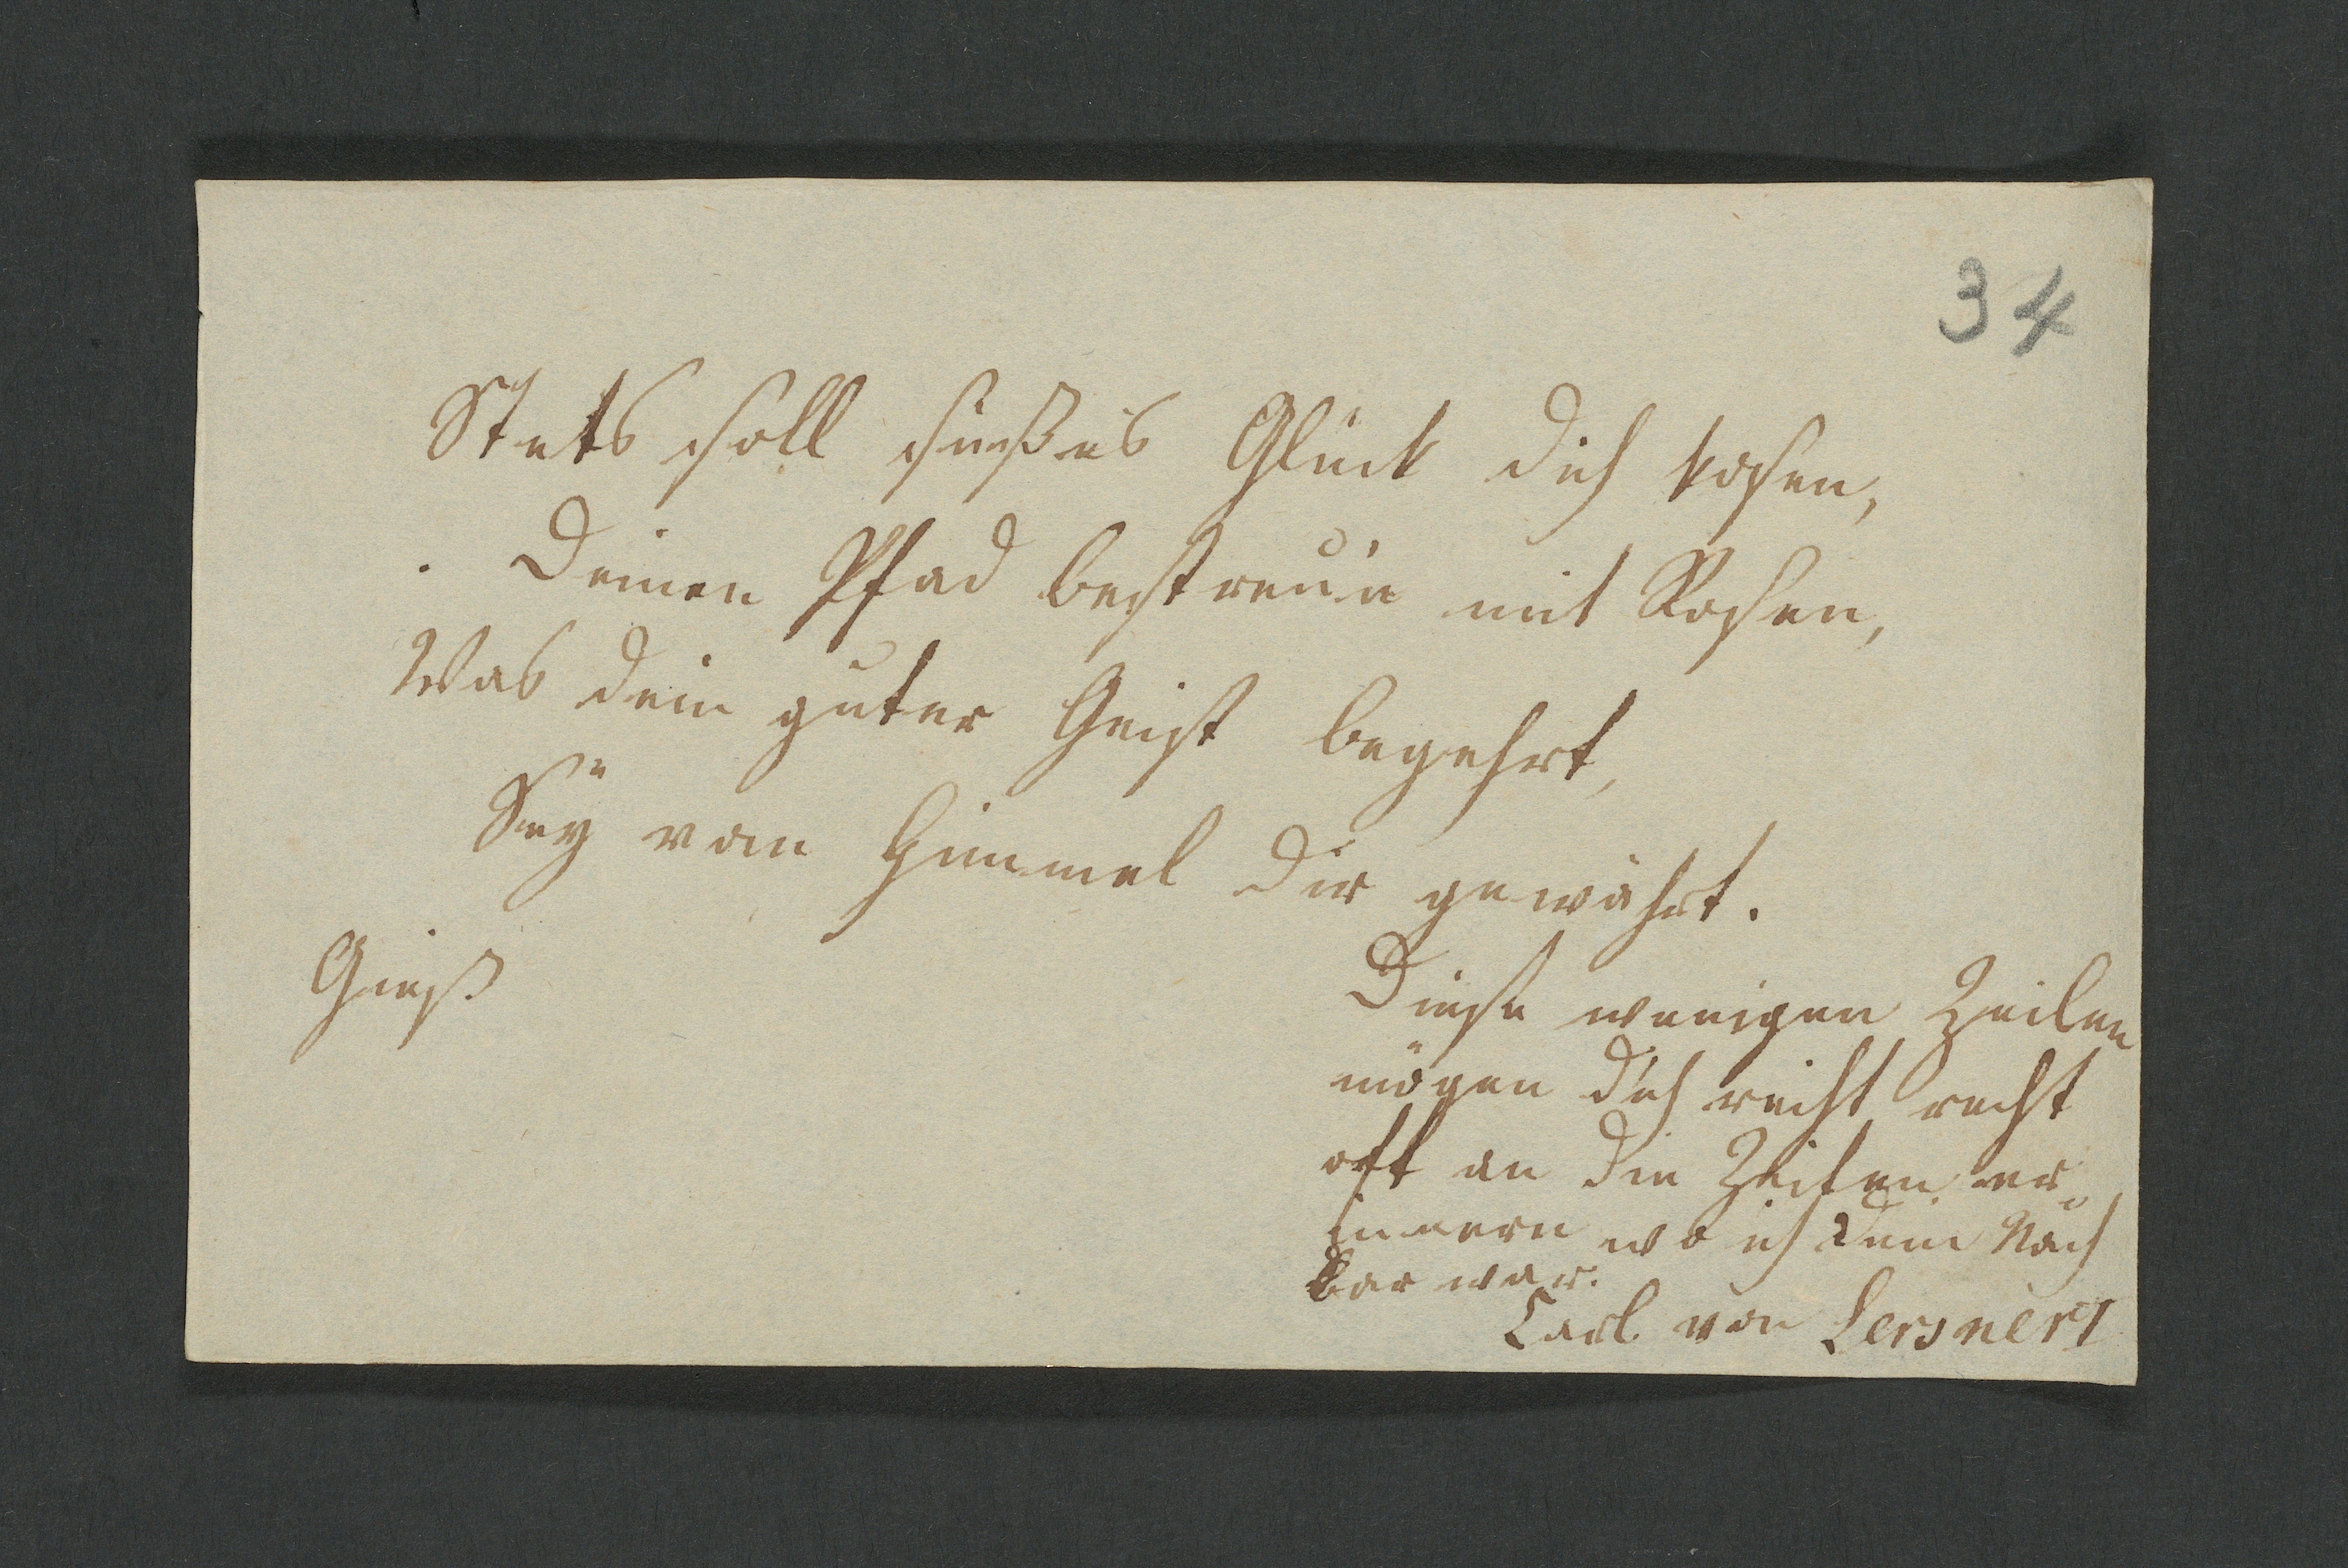 34
Stets soll süßes Glück dich kosen,
Deinen Pfad bestreu'n mit Rosen,
Was dein guter Geist begehrt,
Sey vom Himmel dir gewährt.
Gieß
Diese wenigen Zeilen
mögen dich recht recht
oft an die Zeiten er¬
innern wo ich dein Nach
bar war.
Carl von Lersner